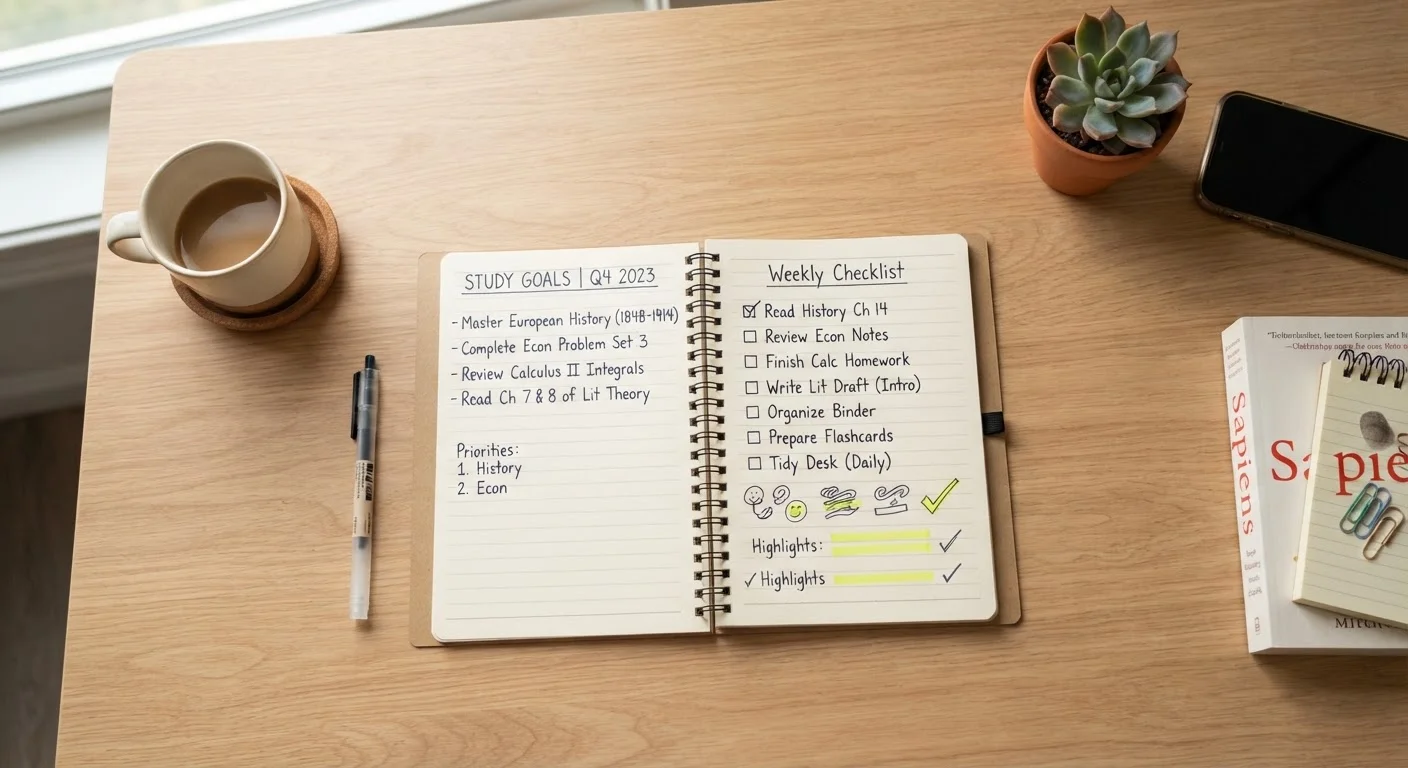 STUDY GOALS | Q4 2023
- Master European History (1848-1914)
- Complete Econ Problem Set 3
- Review Calculus II Integrals
- Read Ch 7 & 8 of Lit Theory
Priorities:
1. History
2. Econ
Weekly Checklist
Read History Ch 14
Review Econ Notes
Finish Calc Homework
Write Lit Draft (Intro)
Organize Binder
Prepare Flashcards
Tidy Desk (Daily)
Highlights:
Highlights
Sapiens
Sapie